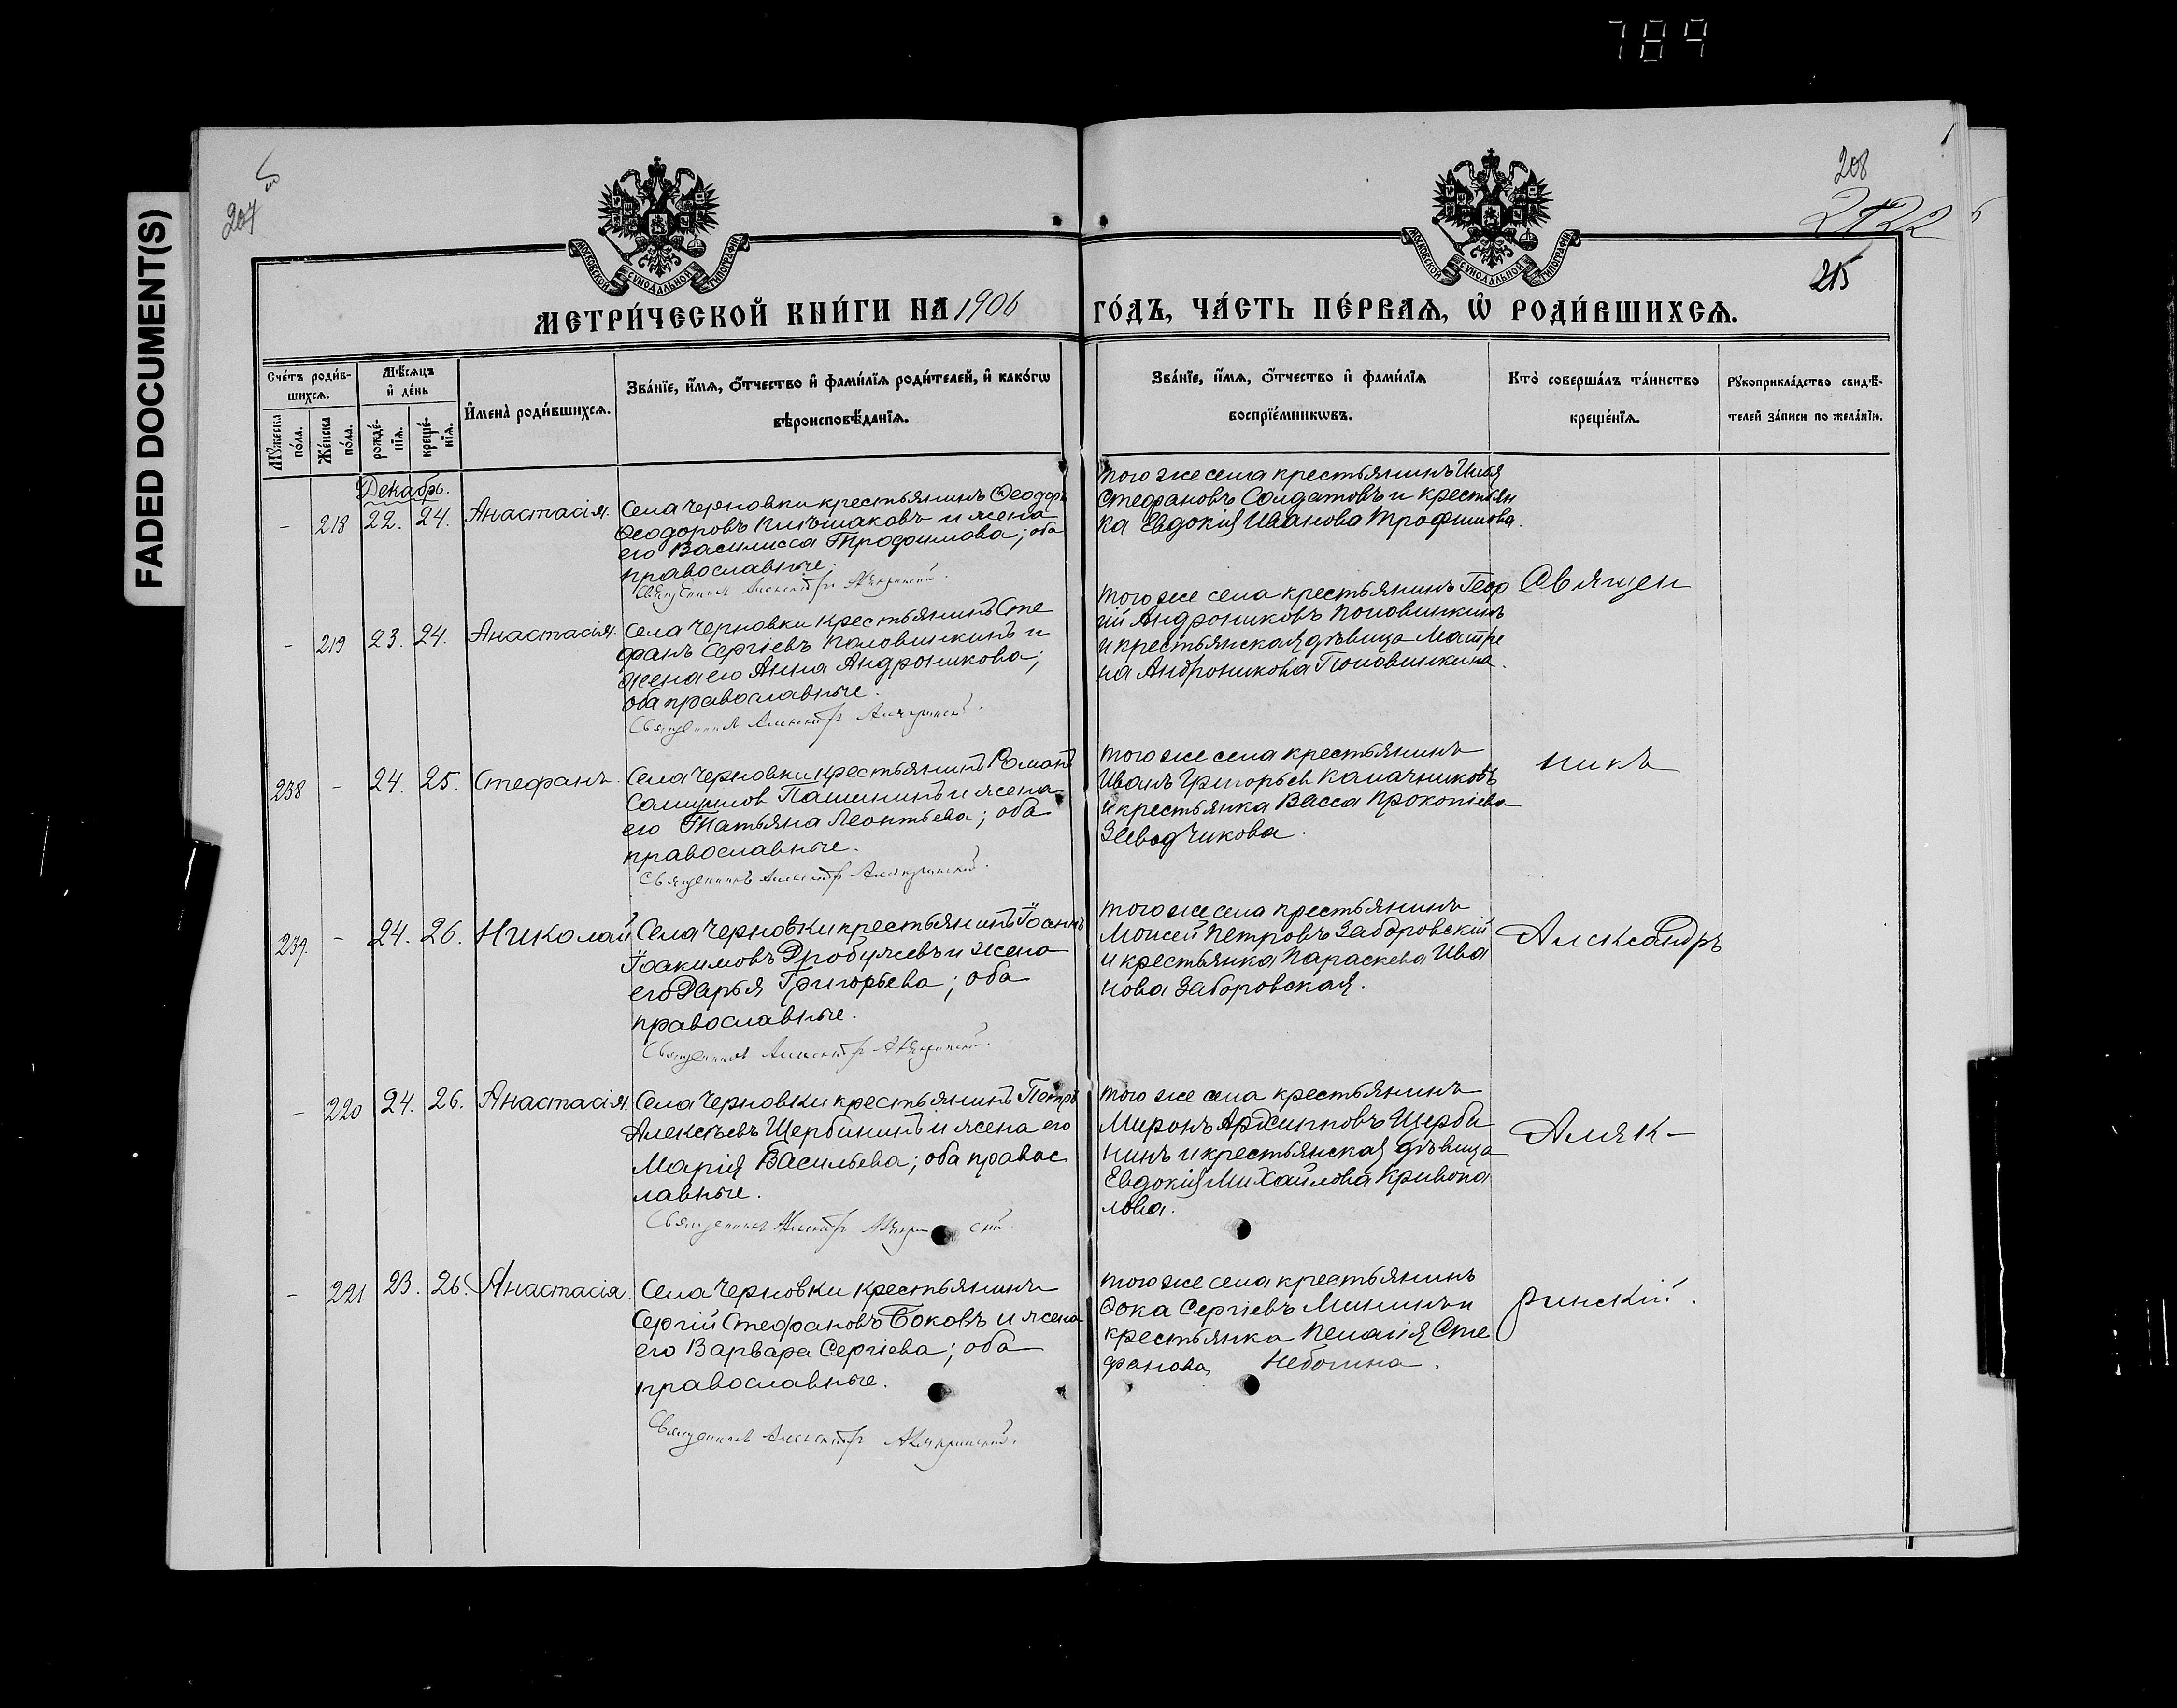 789
FADED DOCUMENT(S)
207
208
215
МОСКОВСКОЙ СѴНОДАЛЬНОЙ ТИПОГРАФІИ
МОСКОВСКОЙ СѴНОДАЛЬНОЙ ТИПОГРАФІИ
МЕТРИ́ЧЕСКОЙ КНИ́ГИ НА 1906 ГО́ДЪ, ЧА́СТЬ ПЕ́РВАѦ, Ѡ҆ РОДИ́ВШИХСѦ.
Сче́тъ роди́в-
шихсѧ.
Мѣ́сѧцъ
и҆ де́нь
Мꙋ́жеска
по́ла.
Же́нска
по́ла.
рожде́-
нїѧ.
креще́-
нїѧ.
И҆мена̀ роди́вшихсѧ.
Зва́нїе, и҆́мѧ, ѻ҆́тчество и҆ фамѝлїѧ роди́телей, и҆ како́гѡ
вѣроисповѣ́данїѧ.
Зва́нїе, и҆́мѧ, ѻ҆́тчество и҆ фамѝлїѧ
воспрїе́мникѡвъ.
Кто̀ соверша́лъ та́инство
креще́нїѧ.
Рꙋкоприкла́дство свидѣ́-
телей за́писи по жела́нїю.
Декабрь.
- 218 22. 24. Анастасія. Села Черновки крестьянинъ Ѳеодоръ
Ѳеодоровъ и жена
его Василисса Трофимова; оба
православные.
Священникъ Александръ Алякринскій.
того же села крестьянинъ Илія
Стефановъ Солдатовъ и крестьян
ка Евдокія Иванова Трофимова.
- 219 23. 24. Анастасія. Села Черновки крестьянинъ Сте
фанъ Сергіевъ Половинкинъ и
жена его Анна Андроникова;
оба православные.
Священникъ Александръ Алякринскій.
того же села крестьянинъ Геор
гій Андрониковъ Половинкинъ
и крестьянская дѣвица Матре
на Андроникова Половинкина.
Священ
238 - 24. 25. Стефанъ. Села Черновки крестьянинъ Романъ
Самуилов Пашининъ и жена
его Татьяна Леонтьева; оба
православные.
Священникъ Александръ Алякринскій.
того же села крестьянинъ
Иванъ Григорьев Калачниковъ
и крестьянка Васса Прокопіева
никъ
239. - 24. 26. Николай Села Черновки крестьянинъ Іоаннъ
Іоакимовъ Дробужевъ и жена
его Дарья Григорьева; оба
православные.
Священникъ Александръ Алякринскій.
того же села крестьянинъ
Моисей Петровъ Заборовскій
и крестьянка Параскева Ива
нова Заборовская.
Александръ
- 220 24. 26. Анастасія. Села Черновки крестьянинъ Петръ
Алексѣевъ Щербининъ и жена его
Марія Васильева; оба правос
лавные.
Священникъ Александръ Алякринскій.
того же села крестьянинъ
Миронъ Архипповъ Щерби
нинъ и крестьянская дѣвица
Евдокія Михайлова Кривопа
лова.
Аляк-
- 221 23. 26. Анастасія. Села Черновки крестьянинъ
Сергій Стефановъ Боковъ и жена
его Варвара Сергіева; оба
православные.
Священникъ Александръ Алякринскій.
того же села крестьянинъ
Фока Сергіевъ Мининъ и
крестьянка Пелагія Сте
фанова Небогина.
ринскій.